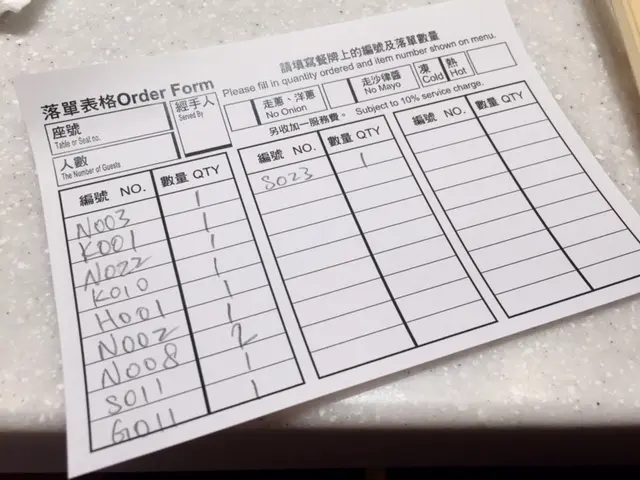 落單表格Order Form
請填寫餐牌上的編號及落單數量
Please fill in quantity ordered and item number shown on menu.
座號
Table or Seat no.
經手人
Served By
走蔥、洋蔥
No Onion
走沙律醬
No Mayo
凍
Cold
熱
Hot
人數
The Number of Guests
另收加一服務費。 Subject to 10% service charge.
編號 NO. 數量 QTY
N003 1
K001 1
N022 1
K010 1
H001 1
N002 1
N008 2
S011 1
G011 1
編號 NO. 數量 QTY
S023 1
編號 NO. 數量 QTY